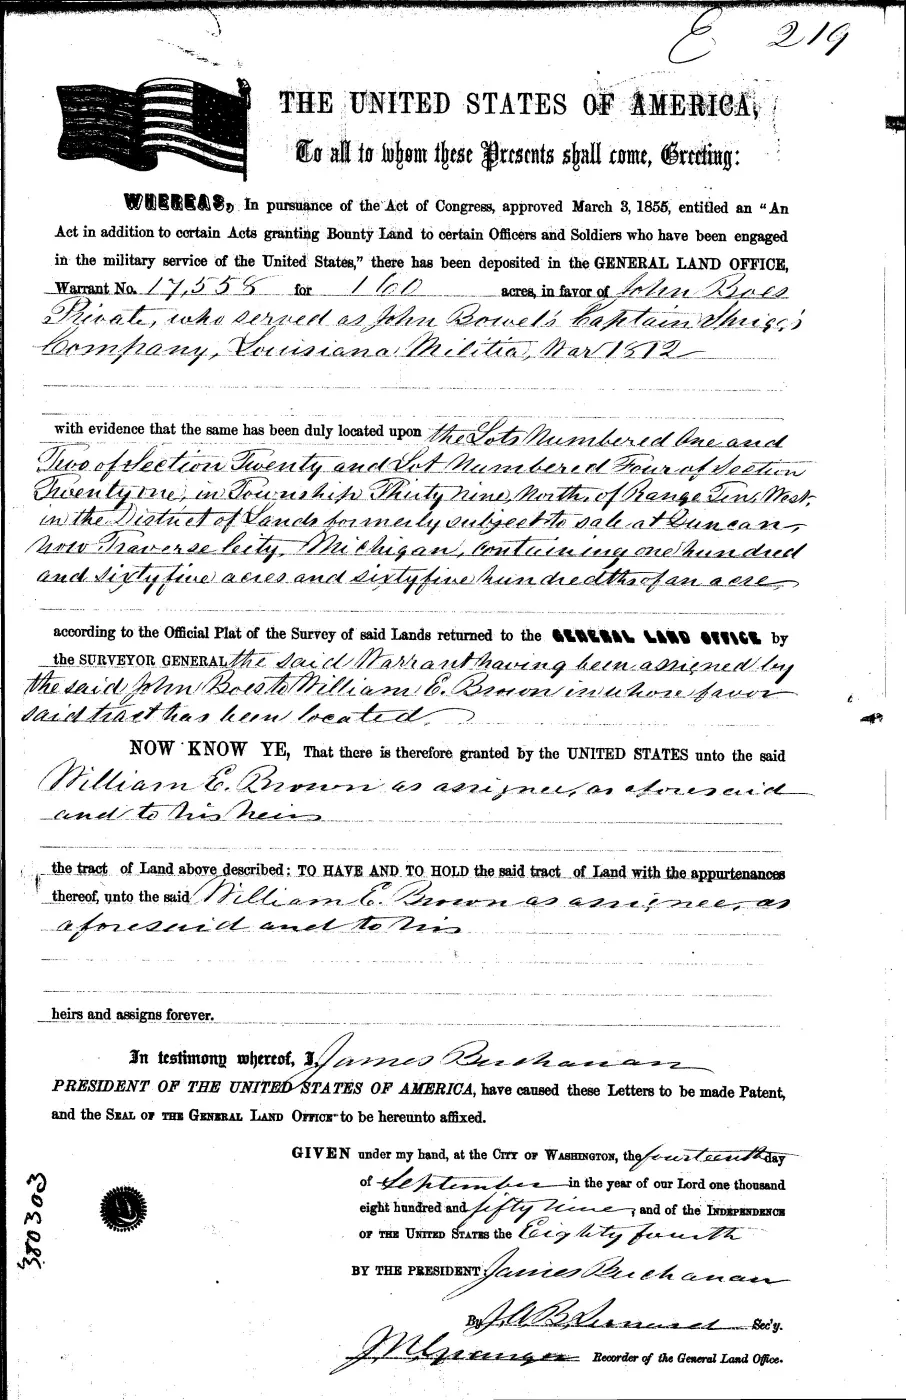 E 219
THE UNITED STATES OF AMERICA,
To all to whom these Presents shall come, Greeting:
WHEREAS, In pursuance of the Act of Congress, approved March 3, 1855, entitled an "An
Act in addition to certain Acts granting Bounty Land to certain Officers and Soldiers who have been engaged
in the military service of the United States," there has been deposited in the GENERAL LAND OFFICE,
Warrant No. 17,558 for 160 acres, in favor of John Boes
Private, who served as John Bowel's Captain
Company, Louisiana Militia, War 1812
with evidence that the same has been duly located upon the Lots Numbered One and
Two of Section Twenty and Lot Numbered Four of Section
Twenty one, in Township Thirty Nine, North, of Range Ten, West,
in the District of Lands formerly subject to sale at Duncan,
now Traverse City, Michigan, containing one hundred
and sixty five acres and sixty five hundredths of an acre,
according to the Official Plat of the Survey of said Lands returned to the GENERAL LAND OFFICE by
the SURVEYOR GENERAL the said Warrant having been assigned by
the said John Boes to William E. Brown in whose favor
said tract has been located.
NOW KNOW YE, That there is therefore granted by the UNITED STATES unto the said
William E. Brown as assignee, as aforesaid
and to his heirs
the tract of Land above described: TO HAVE AND TO HOLD the said tract of Land with the appurtenances
thereof, unto the said William E. Brown as assignee, as
aforesaid and to his
heirs and assigns forever.
In testimony whereof, I, James Buchanan
PRESIDENT OF THE UNITED STATES OF AMERICA, have caused these Letters to be made Patent,
and the SEAL OF THE GENERAL LAND OFFICE to be hereunto affixed.
GIVEN under my hand, at the CITY OF WASHINGTON, the fourteenth day
of September in the year of our Lord one thousand
eight hundred and fifty nine, and of the INDEPENDENCE
OF THE UNITED STATES the Eighty fourth
BY THE PRESIDENT: James Buchanan
By J. A. B. Leonard Sec'y.
J. N. Granger Recorder of the General Land Office.
380303